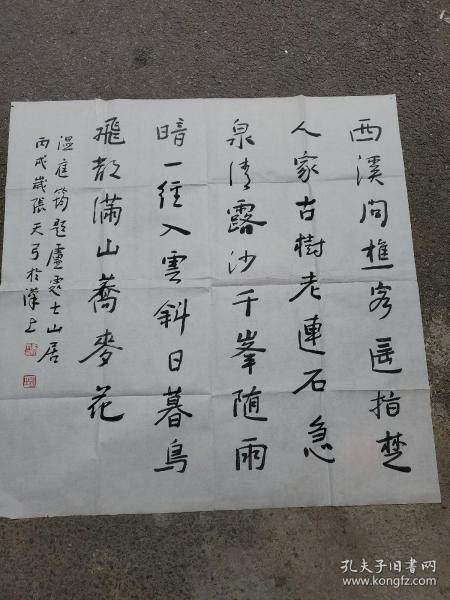 西溪问樵客遥指楚
人家古樹老連石急
泉清露沙千峯随雨
暗一径入雲斜日暮鳥
飛散滿山蕎麥花
温庭筠题盧處士山居
丙戌歲張天弓於漢上
孔夫子旧书网
www.kongfz.com